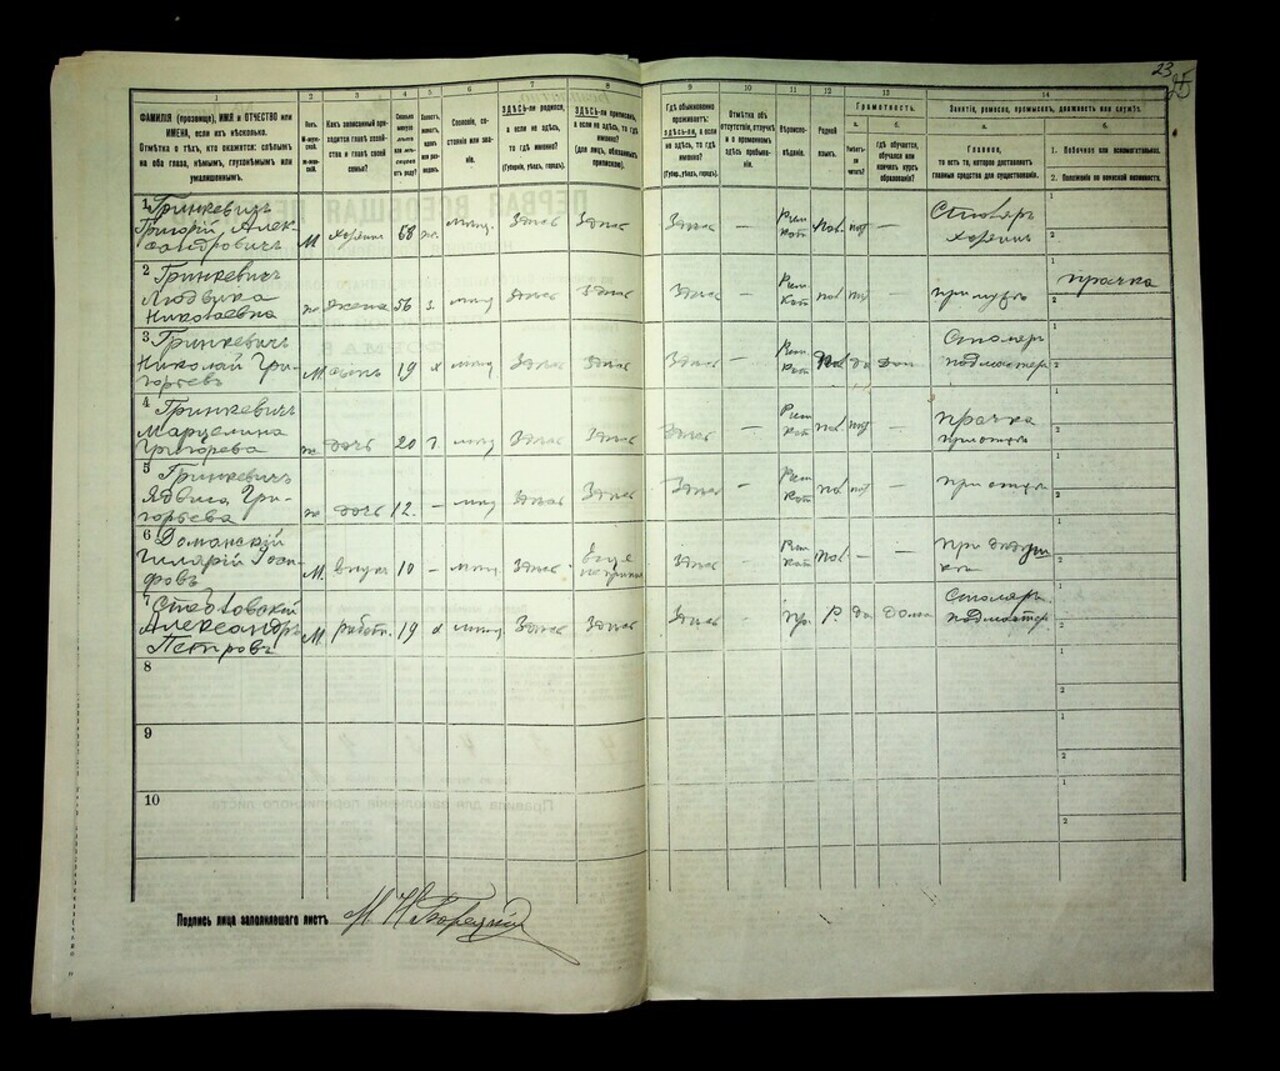 23
25
1
2
3
4
5
6
7
8
9
10
11
12
13
14
ФАМИЛІЯ (прозвище), ИМЯ и ОТЧЕСТВО или
ИМЕНА, если ихъ нѣсколько.
Отмѣтка о тѣхъ, кто окажется: слѣпымъ
на оба глаза, нѣмымъ, глухонѣмымъ или
умалишеннымъ.
Полъ.
Какъ записанный при-
ходится главѣ хозяй-
ства и главѣ своей
семьи?
Сколько
минуло
лѣтъ
или мѣ-
сяцевъ
отъ роду?
Холостъ,
женатъ,
вдовъ
или раз-
веденъ.
Сословіе, со-
стояніе или зва-
ніе.
ЗДѢСЬ-ли родился,
а если не здѣсь,
то гдѣ именно?
(Губернія, уѣздъ, городъ).
ЗДѢСЬ-ли приписанъ,
а если не здѣсь, то гдѣ
именно?
(для лицъ, обязанныхъ
припискою).
Гдѣ обыкновенно
проживаетъ:
здѣсь-ли, а если
не здѣсь, то гдѣ
именно?
(Губер., уѣздъ, городъ).
Отмѣтка объ
отсутствіи, отлучкѣ
и о временномъ
здѣсь пребыва-
ніи.
Вѣроиспо-
вѣданіе.
Родной
языкъ.
Грамотность.
а.
Умѣетъ-
ли
читать?
б.
гдѣ обучается,
обучался или
кончилъ курсъ
образованія?
Занятіе, ремесло, промыселъ, должность или служба.
а.
Главное,
то есть то, которое доставляетъ
главныя средства для существованія.
б.
1. Побочное или вспомогательное.
2. Положеніе по воинской повинности.
1 Гринкевичъ
Григорій Алек-
сандровичъ
М хозяинъ 68 мѣщ. Здѣсь Здѣсь Здѣсь — Рим. Кат. Пол. нѣт — Столяръ хозяинъ
2 Гринкевичъ
Людвика
Николаевна
ж жена 56 з. мѣщ Здѣсь Здѣсь Здѣсь — Рим. Кат. пол нѣт — при мужѣ прачка
3 Гринкевичъ
Николай Гри-
горьевъ
М. сынъ 19 х мѣщ Здѣсь Здѣсь Здѣсь — Рим. Кат. Пол да дом Столяръ подмастер
4 Гринкевичъ
Марцелина
Григорьева
ж. дочь 20 мѣщ Здѣсь Здѣсь Здѣсь — Рим Кат пол нѣт — прачка при отцѣ
5 Гринкевичъ
Ядвига Гри-
горьева
ж дочь 12. — мѣщ Здѣсь Здѣсь Здѣсь — Рим Кат пол нѣт — при отцѣ
6 Доманскій
Гилярій Іоси-
фовъ
М. внукъ 10 — мѣщ Здѣсь Еще не прип Здѣсь — Рим Кат пол — — при дѣдуш кѣ
7
Александръ
Петровъ
М работн. 19 х мѣщ Здѣсь Здѣсь Здѣсь пр. Р. да дома Столяръ подмастер.
8
9
10
Подпись лица заполнявшаго листъ М Н Борецкій